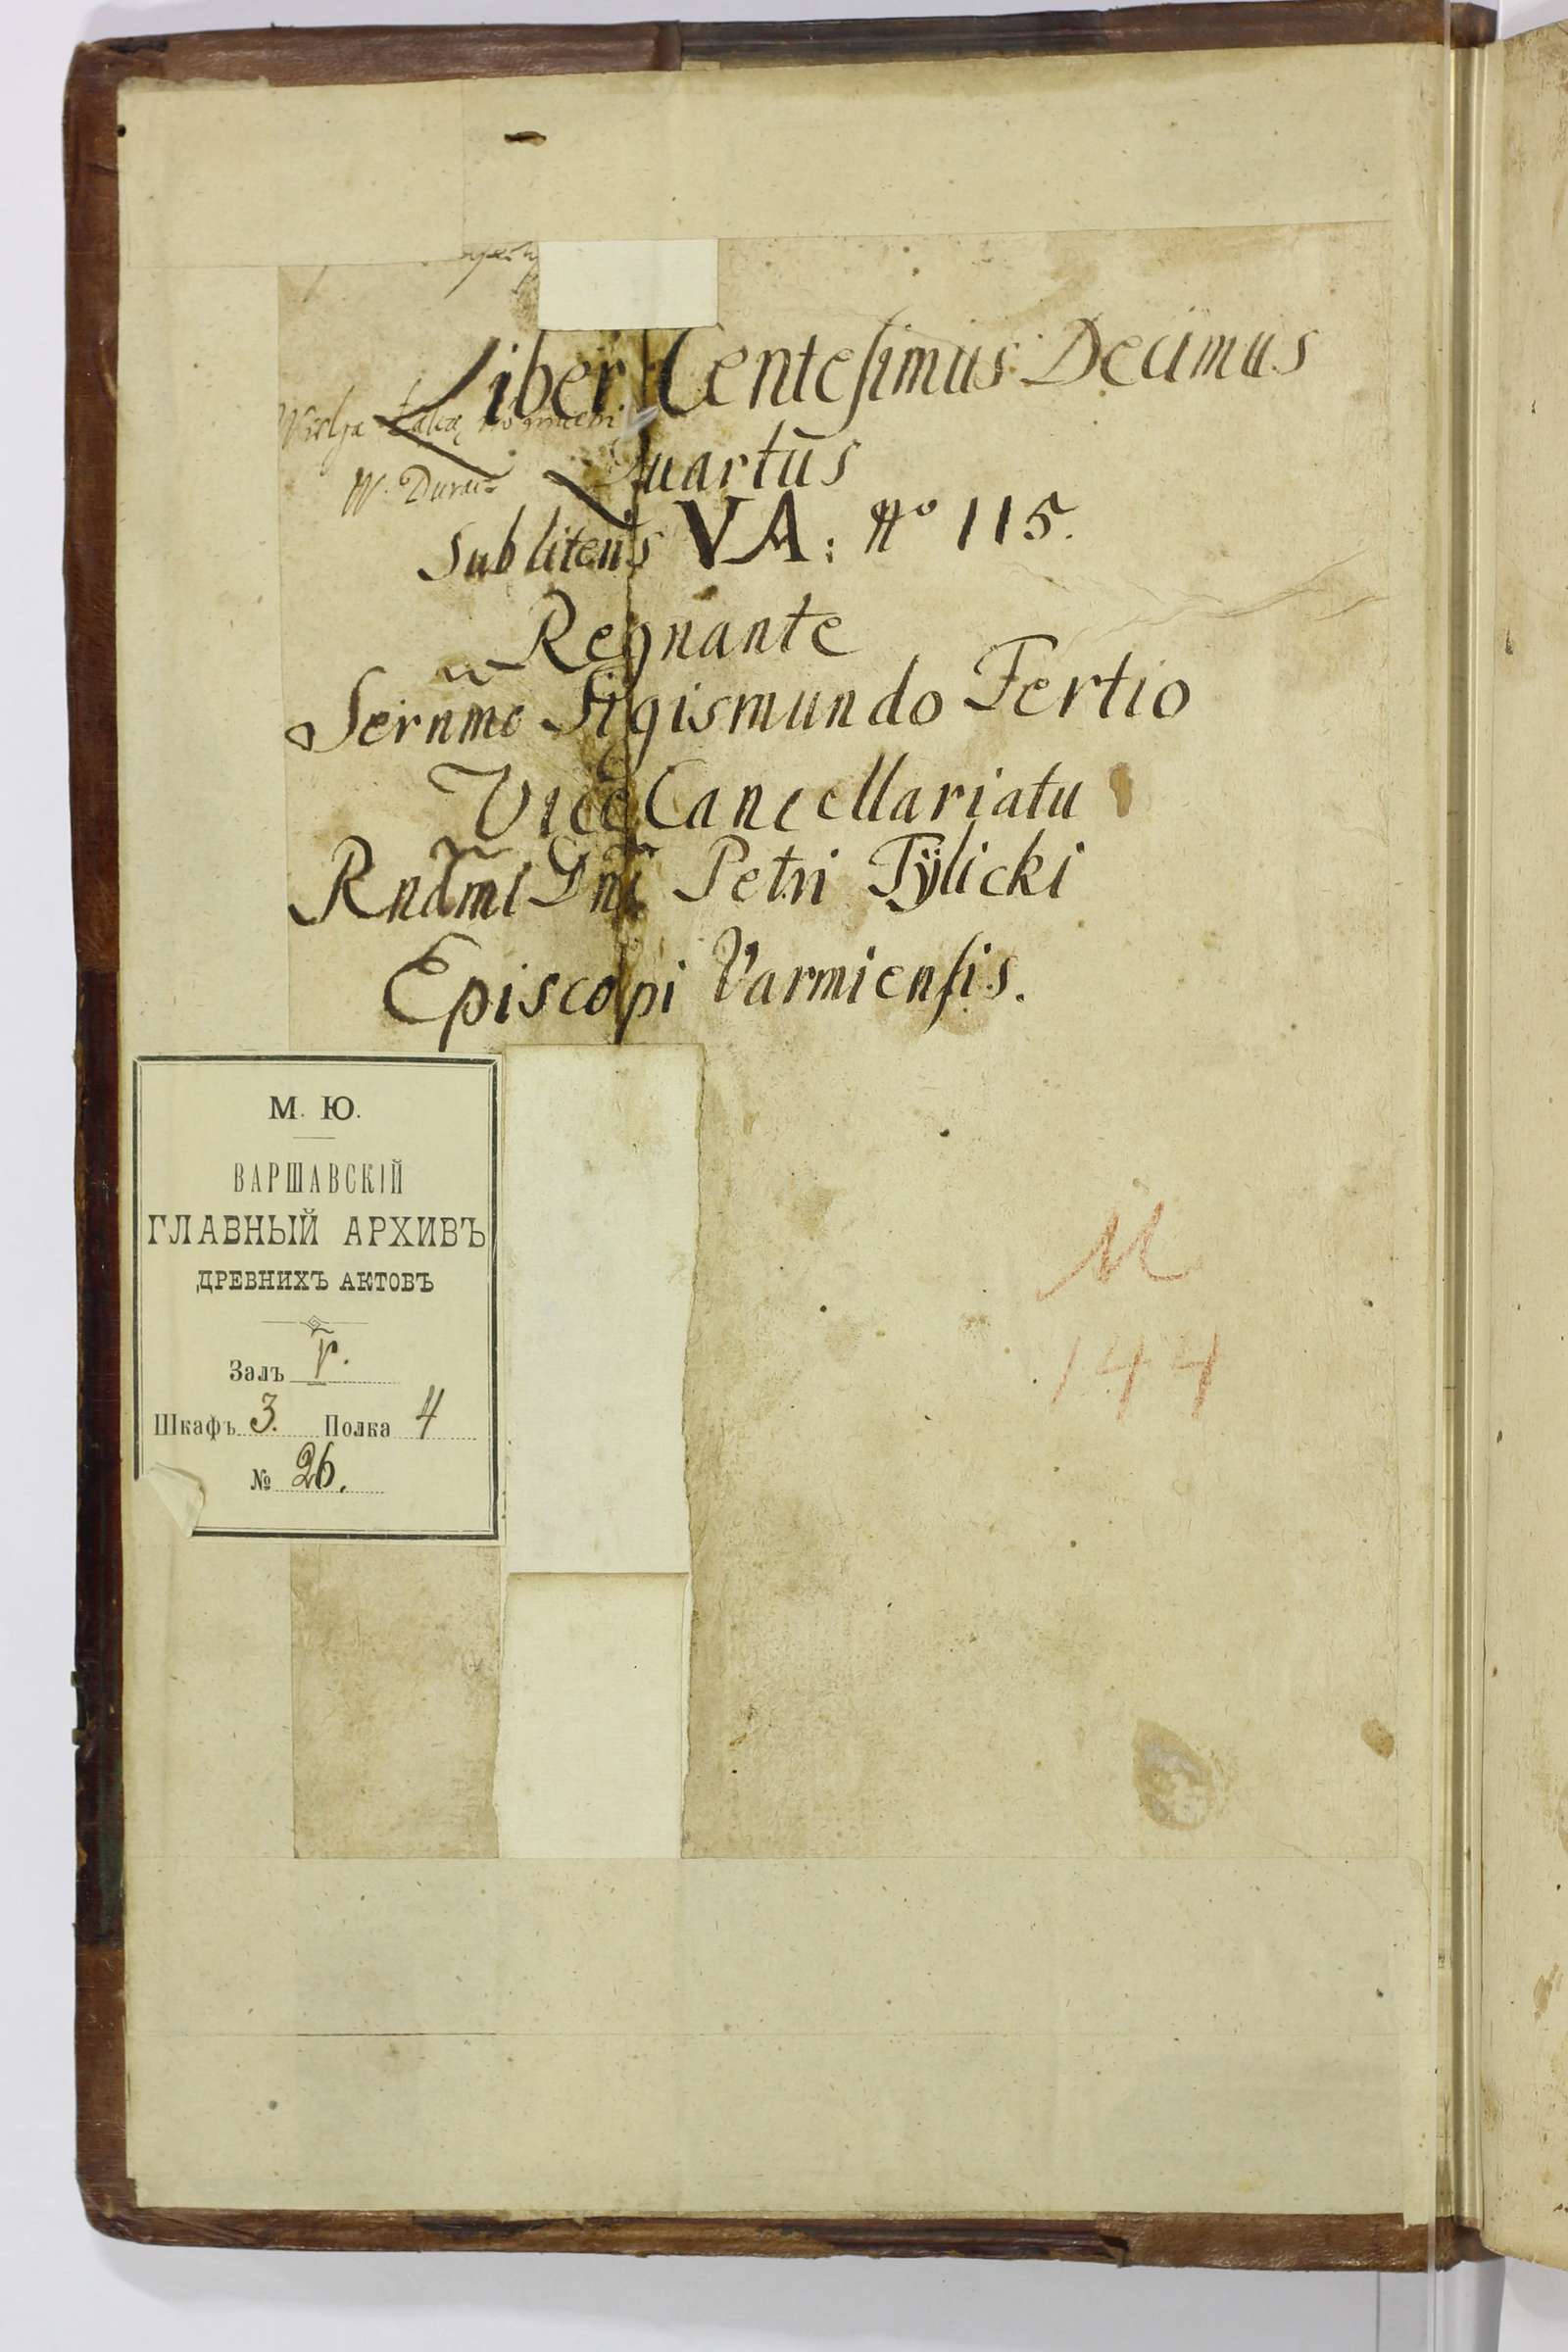 Liber Centesimus Decimus
Quartus
Sub literis VA: No 115.
Regnante
Sernmo Sigismundo Tertio
Vice Cancellariatu
Rndmi Dni Petri Tÿlicki
Episcopi Varmiensis.
W. Dura
М. Ю.
ВАРШАВСКІЙ
ГЛАВНЫЙ АРХИВЪ
ДРЕВНИХЪ АКТОВЪ
Залъ V.
Шкафъ 3. Полка 4
№ 26.
M
144